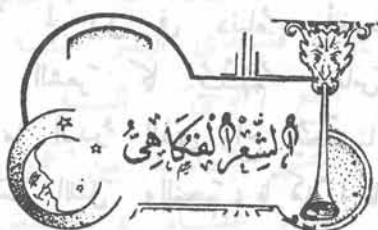 الشِّعْرُ الْفُكَاهِيُّ